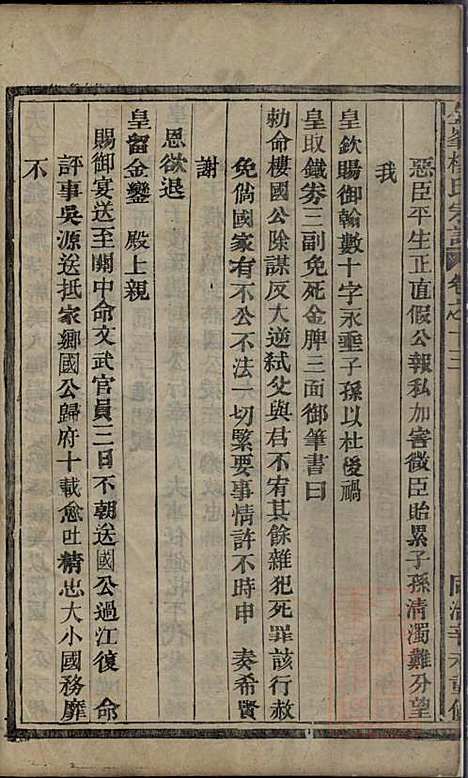 惡臣平生正直假公報私加害微臣貽累子孫清濁難分望
我
皇欽賜御翰數十字永垂子孫以杜後禍
皇取鐵券三副免死金牌三面御筆書曰
勅命樓國公除謀反大逆弑父與君不宥其餘雜犯死罪該行赦
免倘國家有不公不法一切緊要事情許不時申 奏希賢
謝
恩欲退
皇留金鑾 殿上親
賜御宴送至關中命文武官員三日不朝送國公過江復 命
評事吳源送抵家鄉國公歸府十載愈吐精忠大小國務靡
不
樓氏宗譜 卷之十三
同治辛未重修